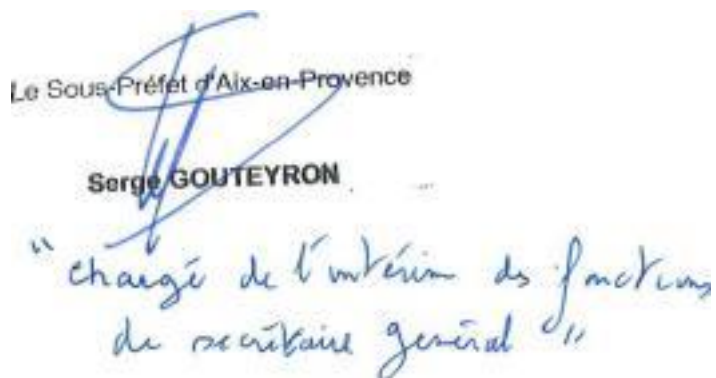 Le Sous-Préfet d'Aix-en-Provence
Serge GOUTEYRON
"chargé de l'intérim des fonctions
de secrétaire général"